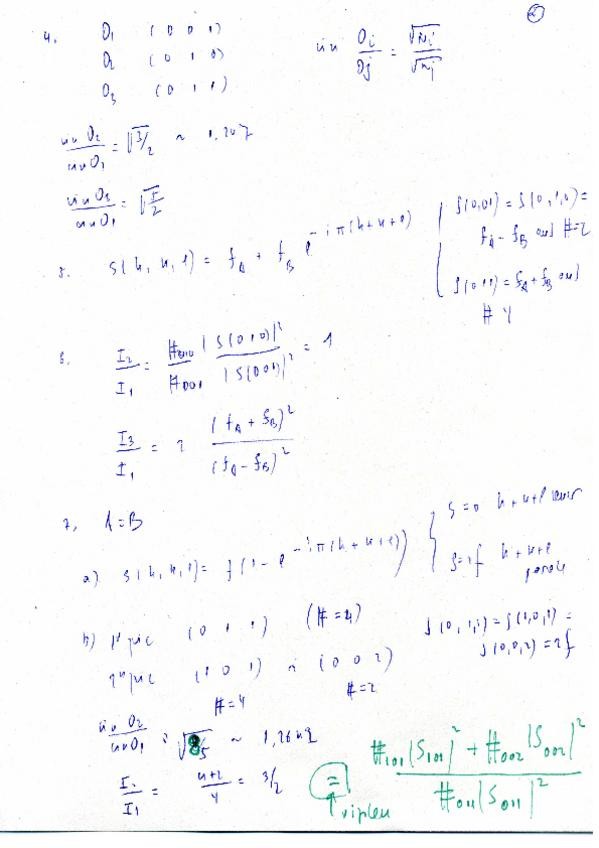 ②
4. θ₁ (0 0 1)
θ₂ (0 1 0)
θ₃ (0 1 1)
sin θi / θj = √Ni / √Nj
sin θ₂ / sin θ₁ = √3/2 ~
sin θ₃ / sin θ₁ =
5. S(h, k, l) = f_A + f_B e^{-iπ(h+k+l)}
S(0,01) = S(0,1,0) =
f_A - f_B and #=2
S(011) = f_A + f_B and
# 4
6. I₂/I₁ = #₀₁₀ |S(010)|² / #₀₀₁ |S(001)|² = 1
I₃/I₁ = 2 (f_A + f_B)² / (f_A - f_B)²
7. A=B
a) S(h, k, l) = f(1 - e^{-iπ(h+k+l)})
S=0 h+k+l
S=2f h+k+l
b) 1º pic (0 1 1) (#=4)
2º pic (1 0 1) (0 0 2)
#=4 #=2
S(0,1,1) = S(1,0,1) =
S(0,0,2) = 2f
sin θ₂ / sin θ₁ = √8/5 ~
I₂/I₁ = 4+2 / 4 = 3/2
= #₁₀₁|S₁₀₁|² + #₀₀₂|S₀₀₂|² / #₀₁₁|S₀₁₁|²